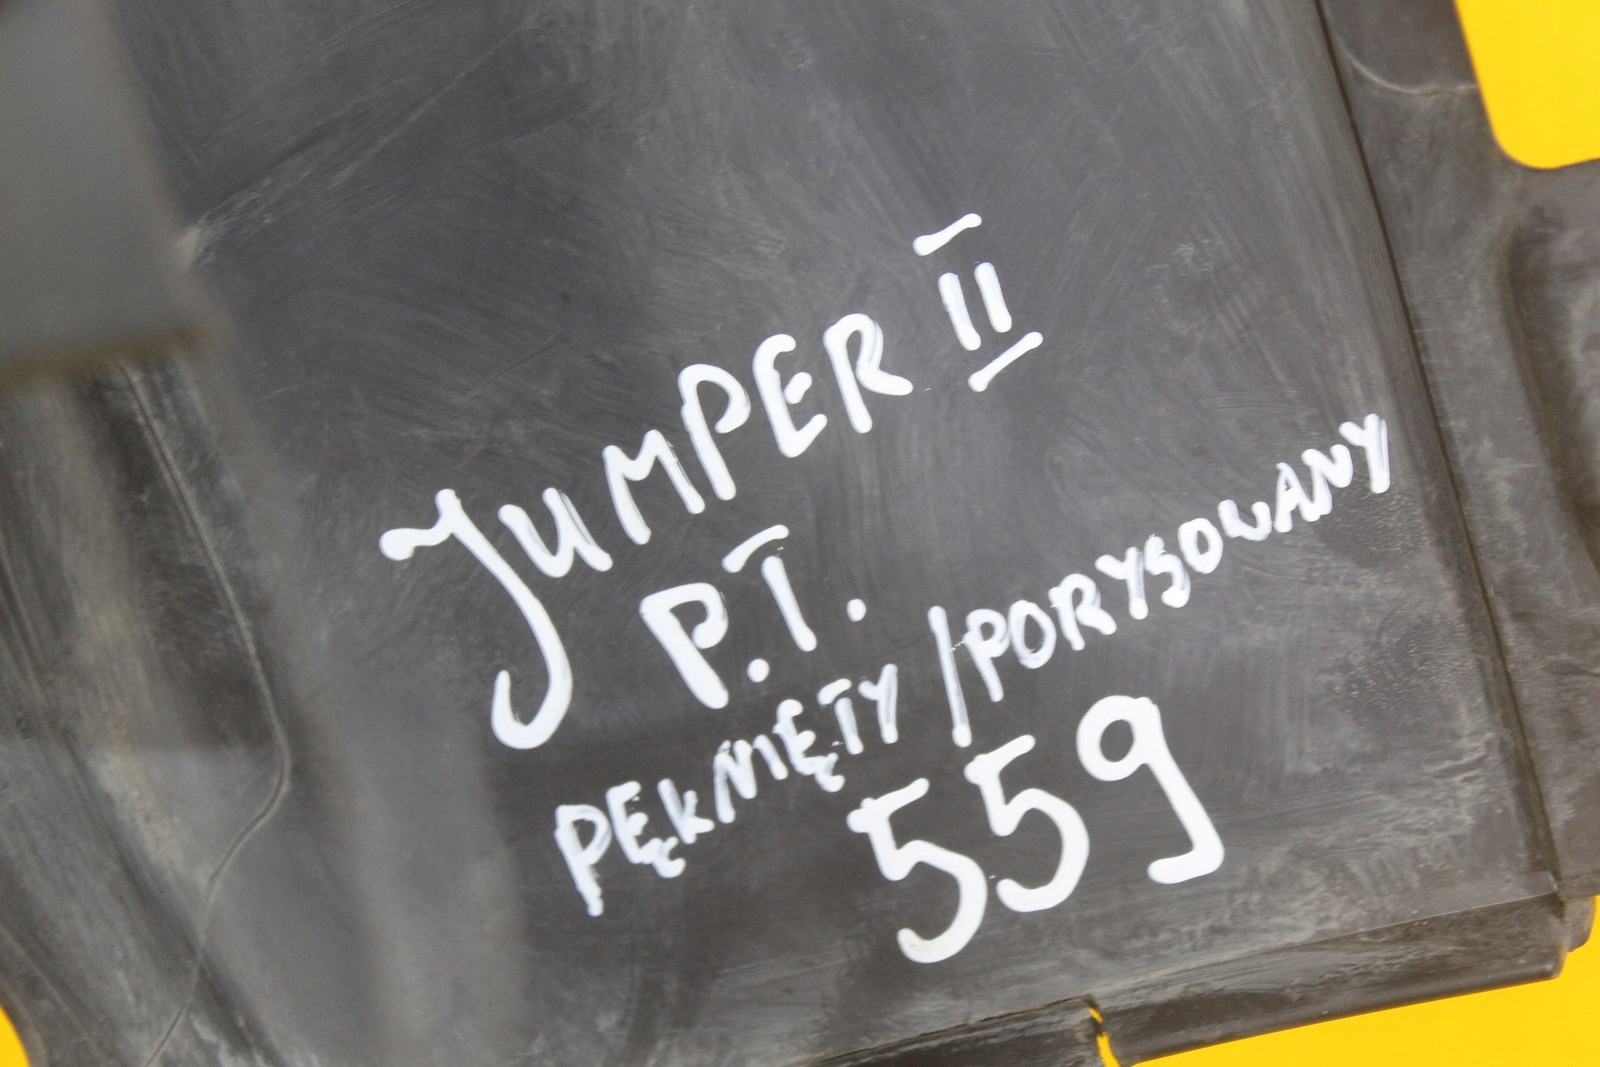 JUMPER II
P.T.
PĘKNIĘTY / PORYSOWANY
559